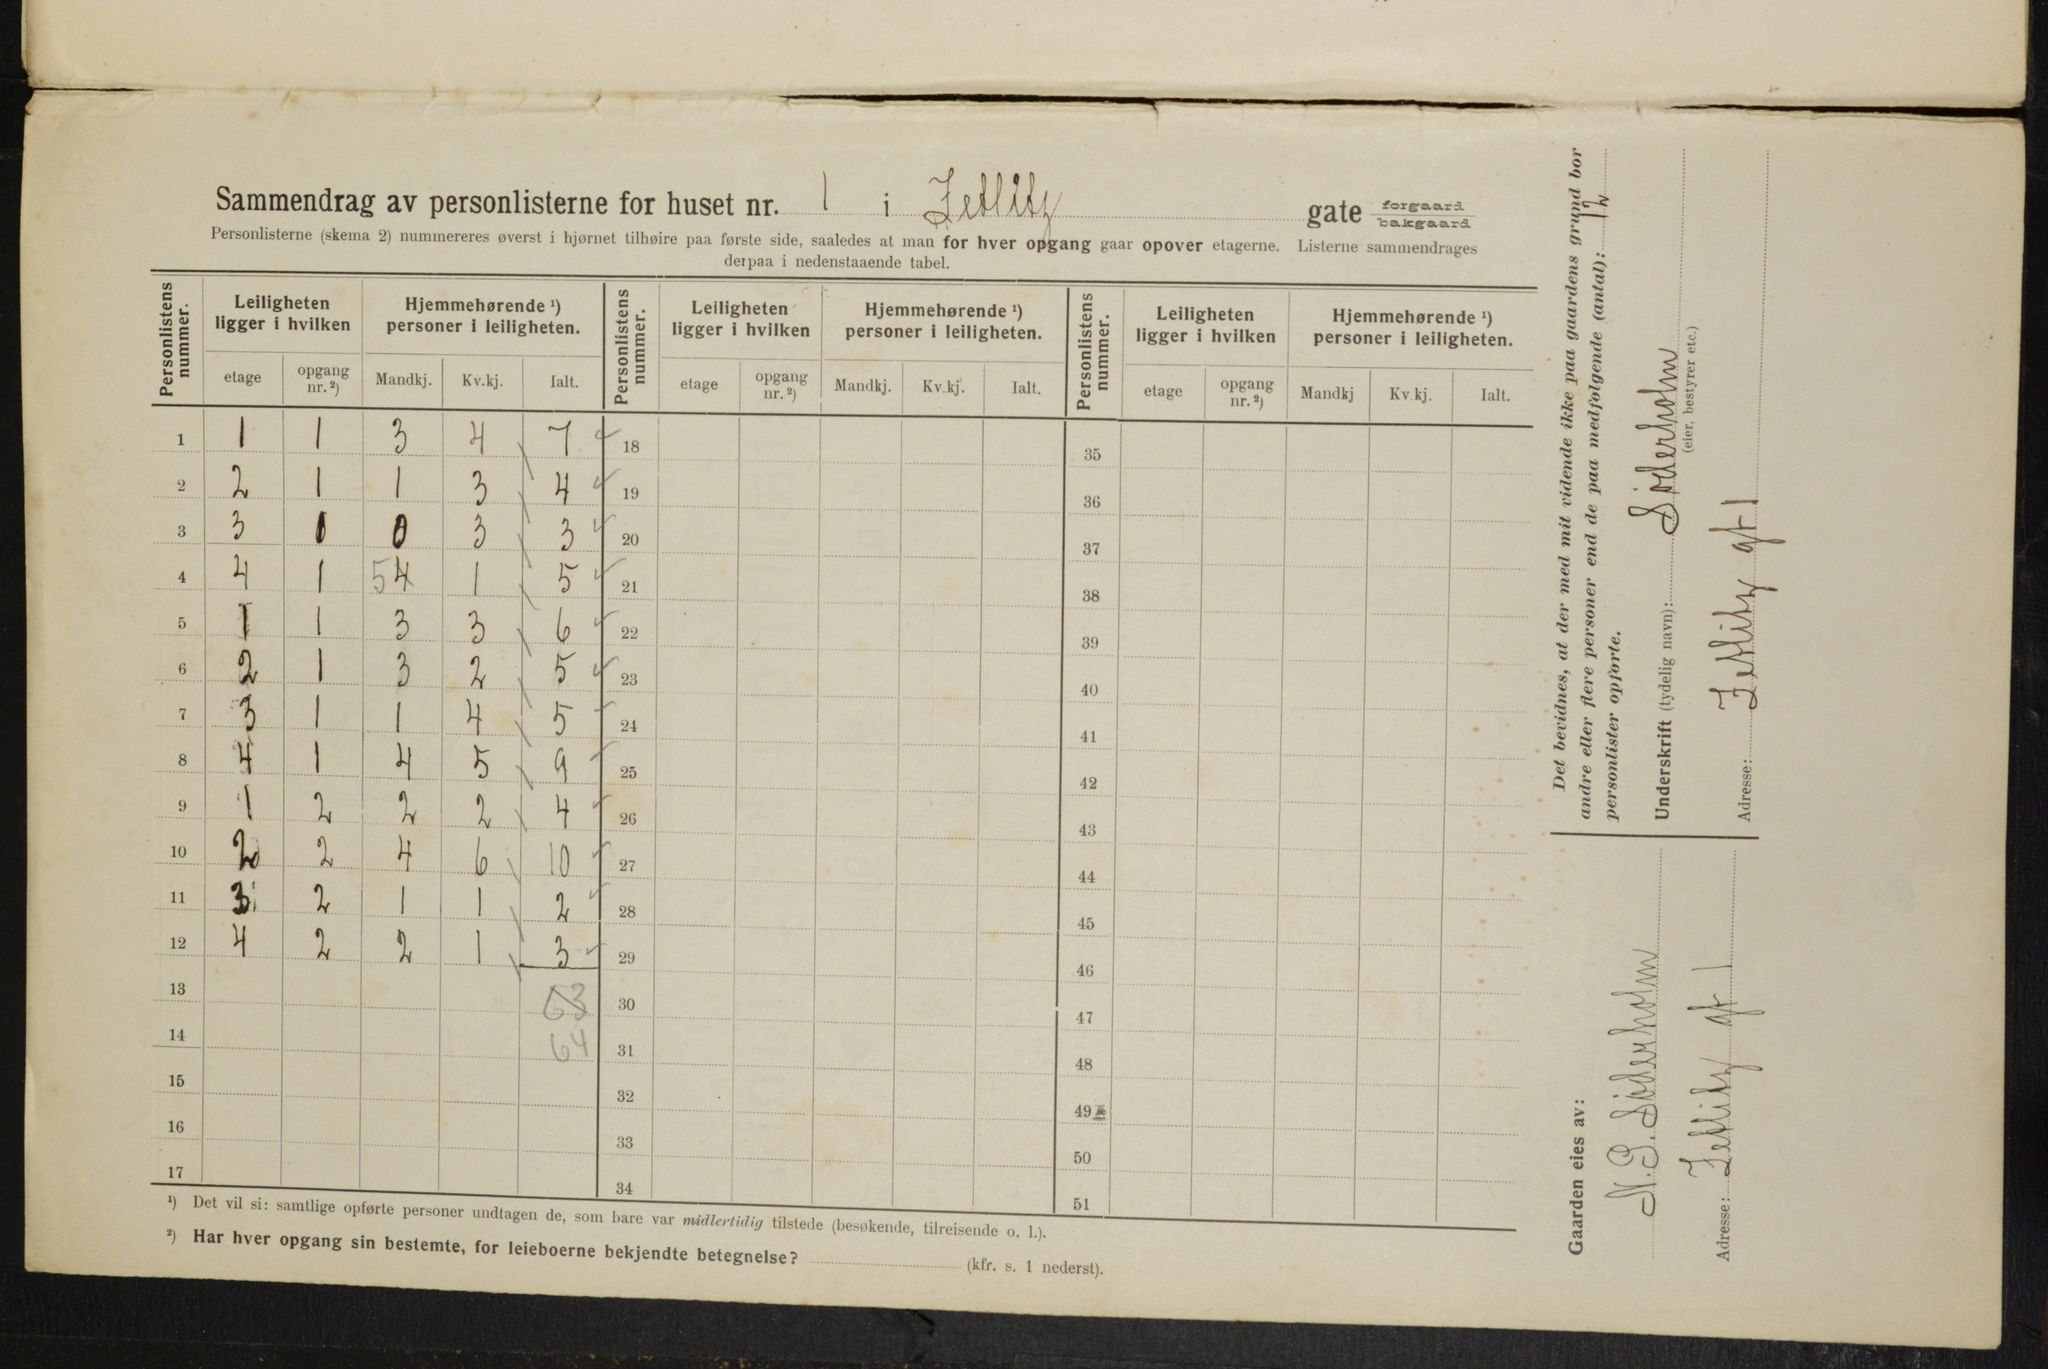 Sammendrag av personlisterne for huset nr. 1 i Zetlitz gate forgaard bakgaard
Personlisterne (skema 2) nummereres øverst i hjørnet tilhøire paa første side, saaledes at man for hver opgang gaar opover etagerne. Listerne sammendrages
derpaa i nedenstaaende tabel.
Personlistens nummer. Leiligheten ligger i hvilken Hjemmehørende ¹) personer i leiligheten. Personlistens nummer. Leiligheten ligger i hvilken Hjemmehørende ¹) personer i leiligheten. Personlistens nummer. Leiligheten ligger i hvilken Hjemmehørende ¹) personer i leiligheten.
etage opgang nr. ²) Mandkj. Kv.kj. Ialt. etage opgang nr. ²) Mandkj. Kv.kj. Ialt. etage opgang nr. ²) Mandkj Kv.kj. Ialt.
1 1 1 3 4 7 18 35
2 2 1 1 3 4 19 36
3 3 0 0 3 3 20 37
4 4 1 5 4 1 5 21 38
5 1 1 3 3 6 22 39
6 2 1 3 2 5 23 40
7 3 1 1 4 5 24 41
8 4 1 4 5 9 25 42
9 1 2 2 2 4 26 43
10 2 2 4 6 10 27 44
11 3 2 1 1 2 28 45
12 4 2 2 1 3 29 46
13 63 30 47
14 64 31 48
15 32 49
16 33 50
17 34 51
¹) Det vil si: samtlige opførte personer undtagen de, som bare var midlertidig tilstede (besøkende, tilreisende o. l.).
²) Har hver opgang sin bestemte, for leieboerne bekjendte betegnelse? (kfr. s. 1 nederst).
Det bevidnes, at der med mit vidende ikke paa gaardens grund bor
andre eller flere personer end de paa medfølgende (antal): 12
personlister opførte.
Underskrift (tydelig navn): Søderholm
(eier, bestyrer etc.)
Adresse: Zetlitz gt 1
Gaarden eies av:
N. P. Søderholm
Adresse: Zetlitz gt 1